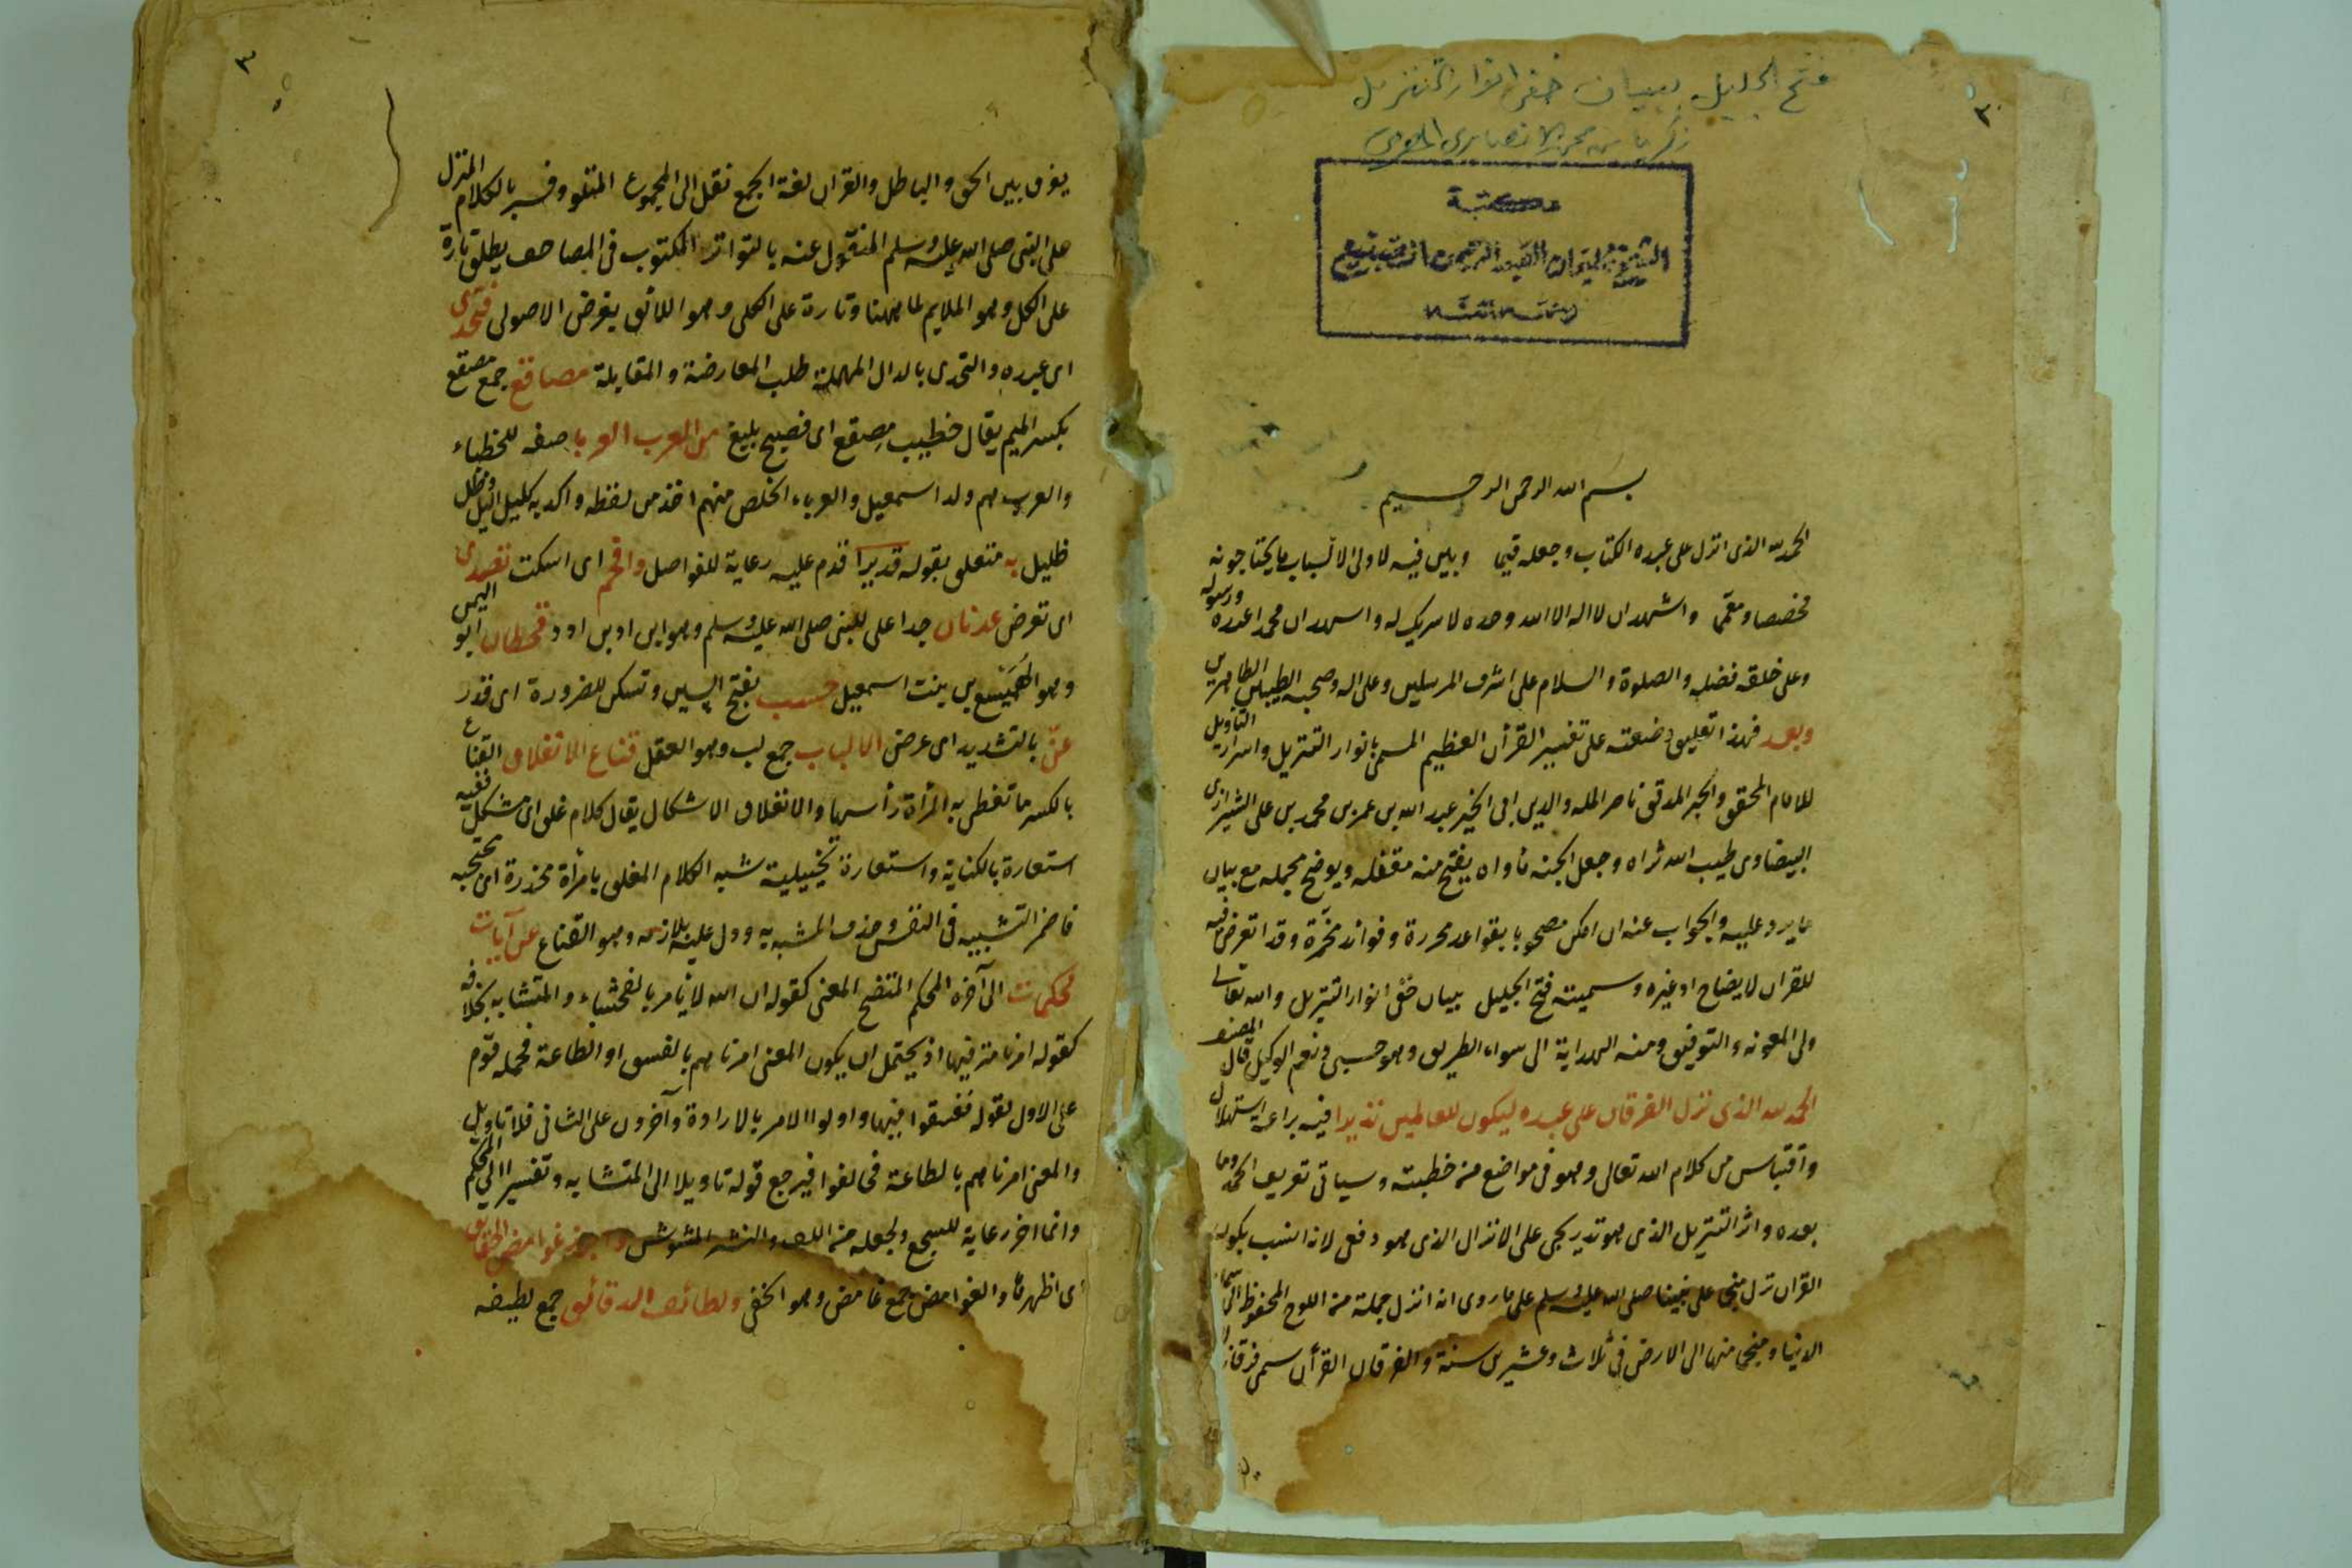 فتح الجليل ببيان خفى انوار التنزيل
زكريا بن محمد الانصارى المصرى
مكتبة
الشيخ سليمان
٢
بسم الله الرحمن الرحيم
الحمد لله الذى انزل على عبده الكتاب وجعله قيما وبين فيه لاولى الالباب ما يحتاجونه
مخصصا ومعمما واشهد ان لا اله الا الله وحده لا شريك له واشهد ان محمدا عبده ورسوله
وعلى خلقه فضله والصلوة والسلام على اشرف المرسلين وعلى اله وصحبه الطيبين الطاهرين
وبعد فهذا تعليق وضعته على تفسير القرأن العظيم المسمى بانوار التنزيل واسرار التأويل
للامام المحقق والحبر المدقق ناصر المله والدين ابى الخير عبد الله بن عمر بن محمد بن على الشيرازى
البيضاوى طيب الله ثراه وجعل الجنه مأواه يفتح منه مقفله ويوضح مجمله مع بيان
ما يرد عليه والجواب عنه ان امكن مصحوبا بقواعد محررة وفوائد وقد اتعرض فيه
للقران لايضاح او غيره وسميته فتح الجليل ببيان خفى انوار التنزيل والله تعالى
ولى المعونه والتوفيق ومنه الهداية الى سواء الطريق وهو حسبى ونعم الوكيل قال المصنف
الحمد لله الذى نزل الفرقان على عبده ليكون للعالمين نذيرا فيه براعة استهلال
واقتباس من كلام الله تعالى وهو فى مواضع من خطبته وسياتى تعريف الحمد وما
بعده واثر التنزيل الذى هو تدريجى على الانزال الذى هو دفعى لانه انسب بكونه
القران نزل منجما على نبينا صلى الله عليه وسلم على ما روى انه انزل جملة من اللوح المحفوظ الى سماء
الدنيا ومنجما منها الى الارض فى ثلاث وعشرين سنة والفرقان القرأن سمى فرقانا
٣
يفرق بين الحق والباطل والقران لغة الجمع نقل الى المجموع المتلو وفسر بالكلام المنزل
على النبى صلى الله عليه وسلم المنقول عنه بالتواتر المكتوب فى المصاحف يطلق تارة
على الكل وهو الملايم لما ههنا وتارة على الكلى وهو اللائق بغرض الاصولى فتحدى
اى عبده والتحدى بالدال المهملة طلب المعارضة والمقابلة مصاقع جمع مصقع
بكسر الميم يقال خطيب مصقع اى فصيح بليغ من العرب العربا صفه للخطباء
والعرب هم ولد اسمعيل والعرباء الخلص منهم اخذ من لفظه واكد به كليل اليل وظل
ظليل به متعلق بقوله قديرا قدم عليه رعاية للفواصل وافحم اى اسكت تصدى
اى تعرض عدنان جد اعلى للنبى صلى الله عليه وسلم وهو ابن اد بن ادد قحطان ابو اليمن
وهو الهميسع بن بنت اسمعيل حسب بفتح السين وتسكن للضرورة اى قدر
عنّ بالتشديد اى عرض الالباب جمع لب وهو العقل قناع الانغلاق القناع
بالكسر ما تغطى به المرأة رأسها والانغلاق الاشكال يقال كلام غلق اى مشكل ففيه
استعارة بالكناية واستعارة تخييلية شبه الكلام المغلق بامرأة مخدرة اى محتجبه
فاضمر التشبيه فى النفس وحذف المشبه به ودل عليه بلازمه وهو القناع عن آيات
محكمات الى آخره المحكم المتضح المعنى كقوله ان الله لا يأمر بالفحشاء والمتشابه بخلافه
كقوله امرنا مترفيها اذ يحتمل ان يكون المعنى امرناهم بالفسق او الطاعة فحمله قوم
على الاول لقوله ففسقوا فيها واولوا الامر بالارادة وآخرون على الثانى فلا تاويل
والمعنى امرناهم بالطاعة فخالفوا فيرجع قوله تاويلا الى المتشابه وتفسيرا الى المحكم
وانما اخر رعاية للسجع ولجعله من اللف والنشر المشوش وابرز غوامض الحقائق
اى اظهرها والغوامض جمع غامض وهو الخفى ولطائف الدقائق جمع لطيفه